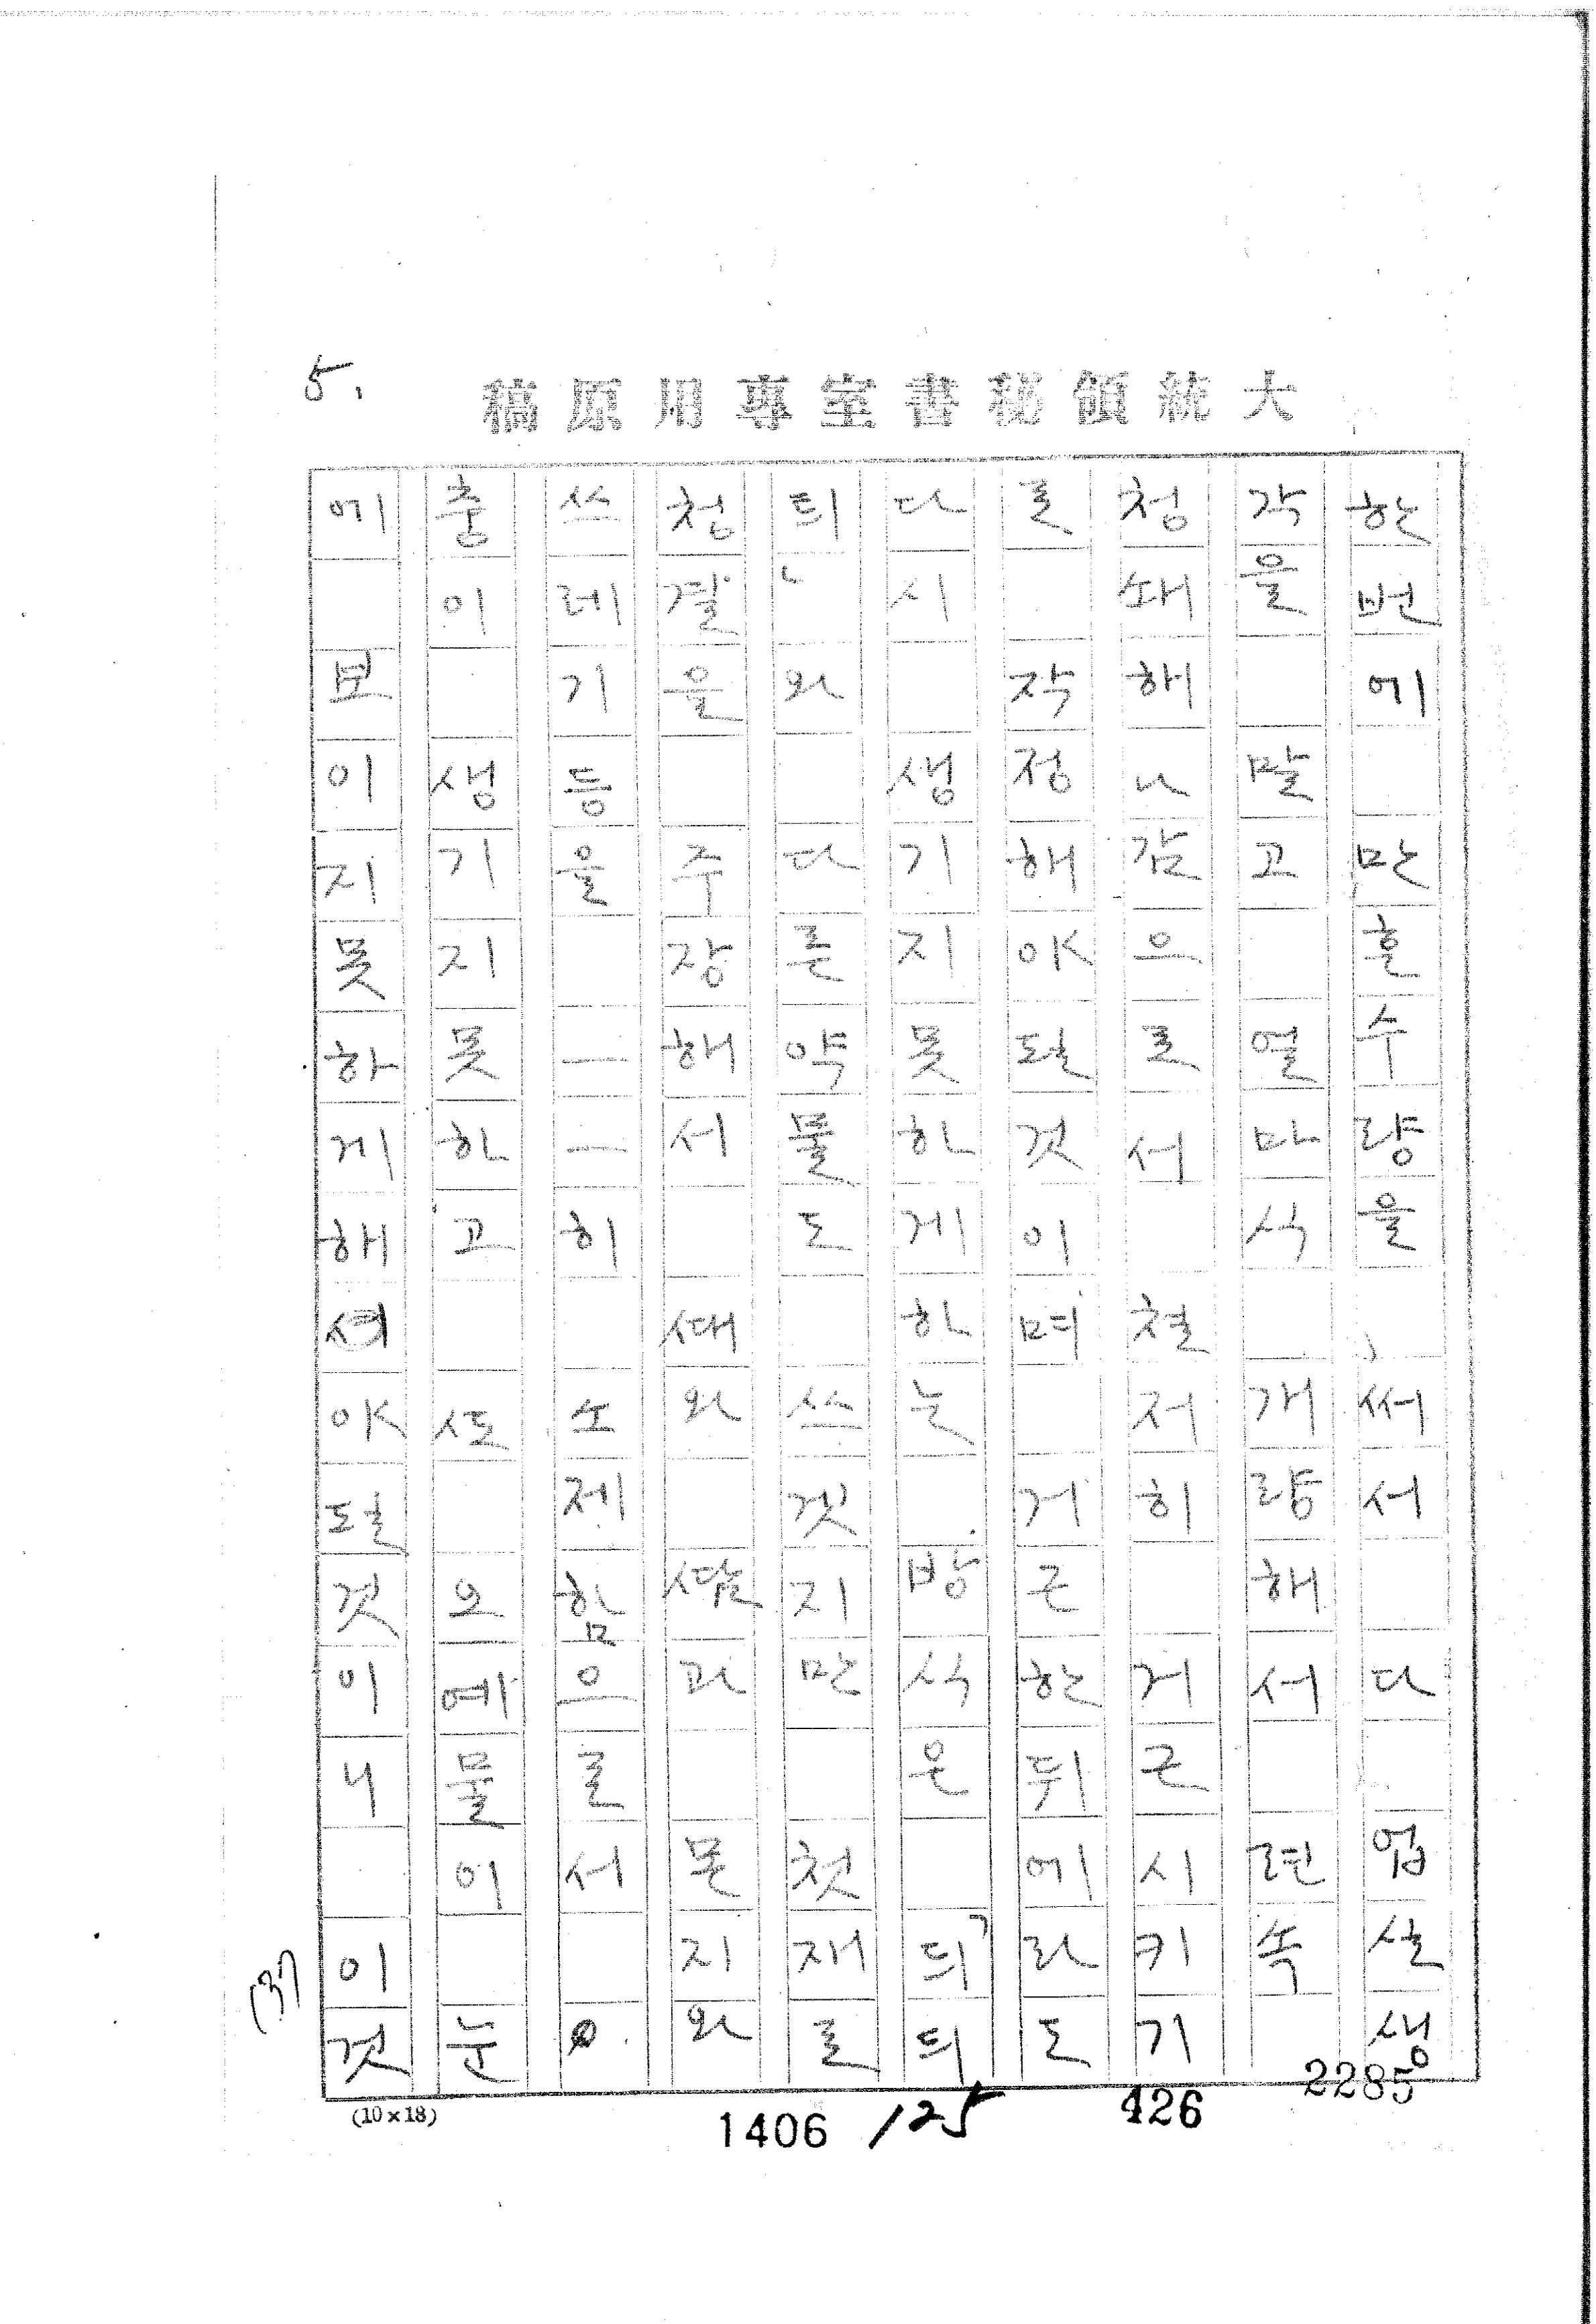 5.
大統領秘書室專用原稿
한번에 만흔수량을, 써서 다 업실생
각을 말고 얼마식 개량해서 련속
청쇄해나감으로서 철저히 거근시키기
로 작정해야될것이며 거근한뒤에라도
다시 생기지못하게하는 방식은 듸듸
틔、와 다른약물도 쓰겟지만 첫재로
청결을 주장해서 ᄯᅢ와 ᄯᅡᆷ과 몬지와
쓰레기등을 一一히 소제함으로서
충이 생기지못하고 ᄯᅩ 오예물이 눈
에 보이지못하게해야될것이니 이것
(3)
(10×18)
1406 125 426 2285